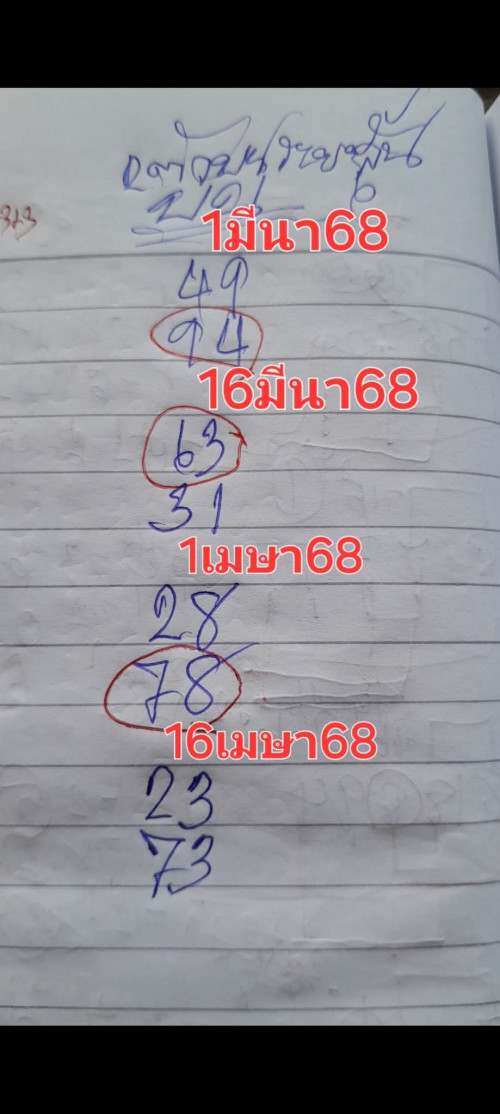 1มีนา68
49
94
16มีนา68
63
31
1เมษา68
28
78
16เมษา68
23
73